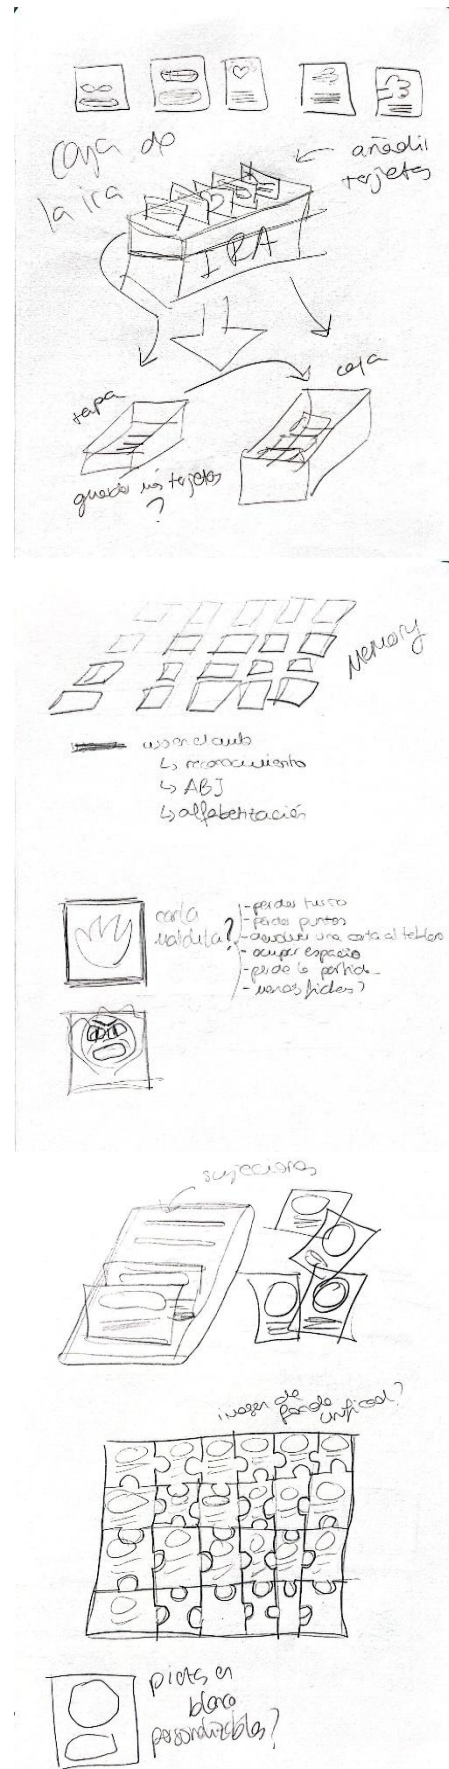 Caja de
la ira
añadir
tarjetas
IRA
tapa
caja
guardar más tarjetas
?
Memory
uso en el aula
↳ reconocimiento
↳ ABJ
↳ alfabetización
carta
maldita?
- perder turno
- perder puntos
- devolver una carta al tablero
- ocupar espacio
- perder la partida
- menos fichas?
sujeciones
imagen de
fondo unificad?
piezas en
blanco
personalizables?